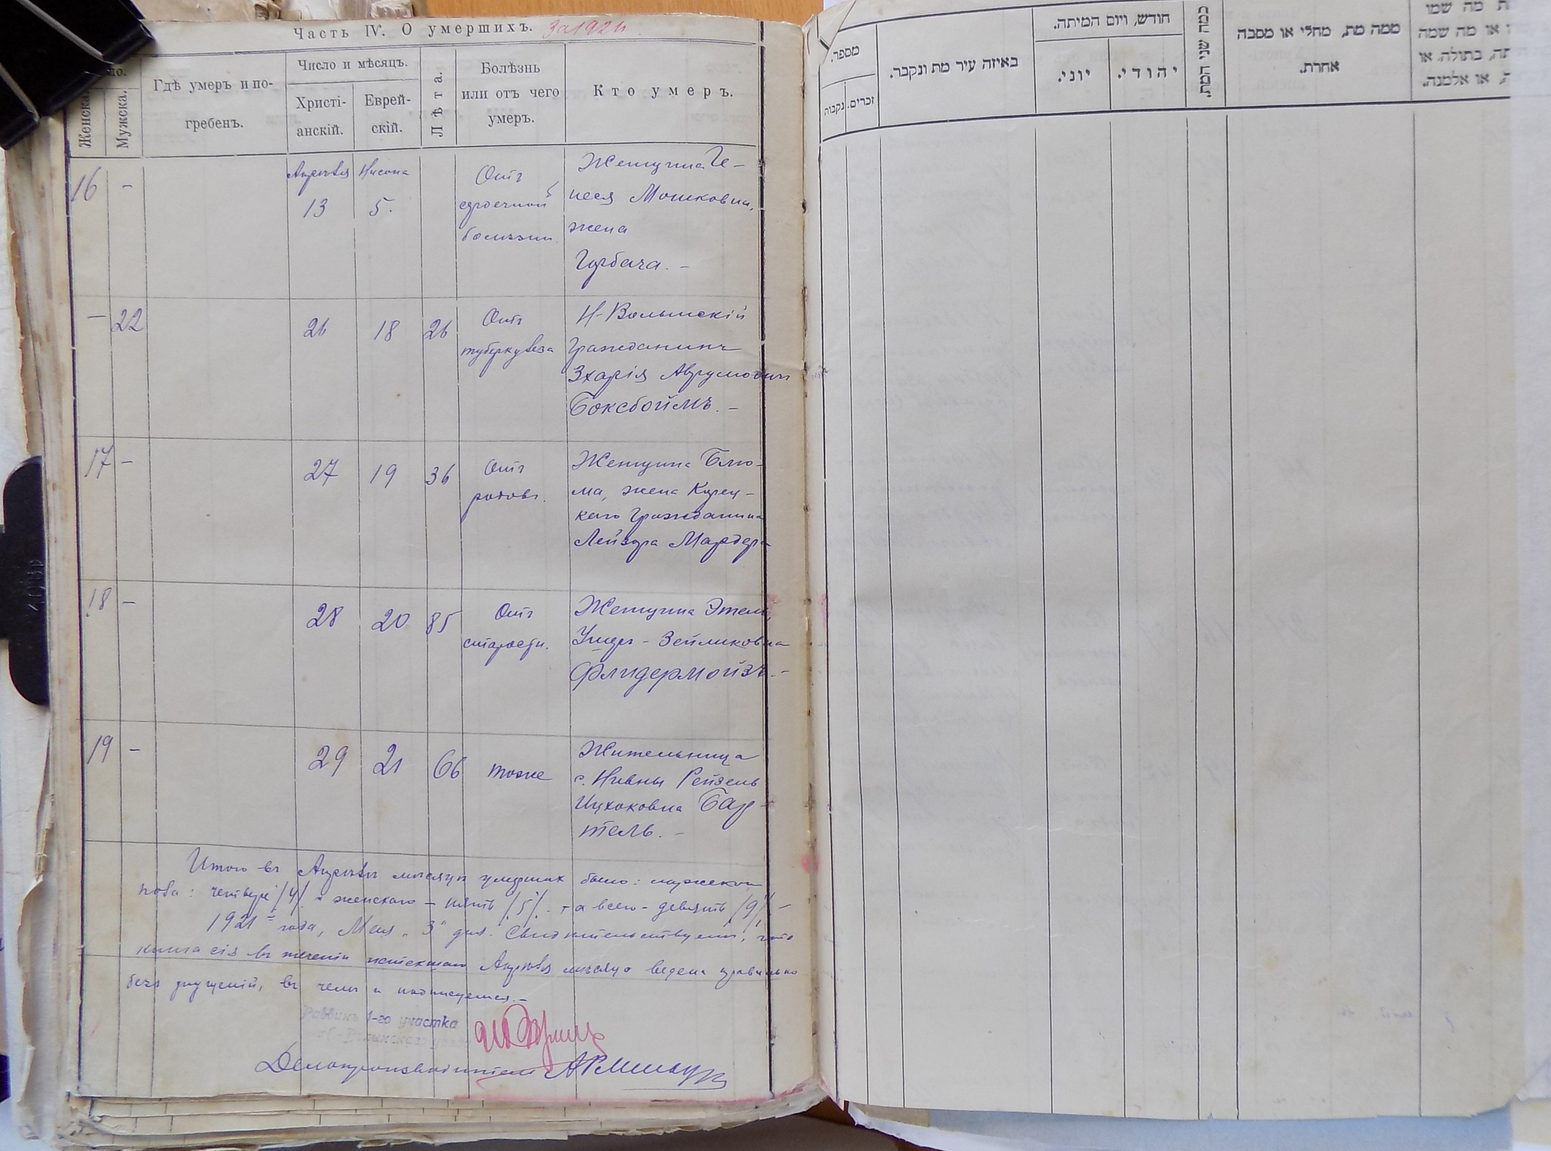 Часть IV. О умершихъ. За 1921
Женска.
Мужска.
Гдѣ умеръ и по-
гребенъ.
Число и мѣсяцъ.
Христі-
анскій.
Еврей-
скій.
Лѣта.
Болѣзнь
или отъ чего
умеръ.
Кто умеръ.
16 - Апрѣля 13 Нисона 5. Отъ
болѣзни
Женщина Ге-
неся Мошковна,
жена
Гурбача. -
- 22 26 18 26 Отъ
туберкулеза
Н-Волынскій
Гражданинъ
Зхарія Аврумовичъ
Боксбоймъ. -
17 - 27 19 36 Отъ
родовъ.
Женщина Блю-
ма, жена Корец-
каго Гражданина
Лейзора Мардера
18 - 28 20 85 Отъ
старости.
Женщина Этель
Ушеръ-Зейликовна
Флидермойзъ. -
19 - 29 21 66 тоже
Жительница
с. Нивны Рейзель
Ицхоковна Бар-
тель. -
Итого въ Апрѣлѣ мѣсяцѣ умершихъ было: мужеска
пола: четыре /4/ и женскаго - пять /5/. - а всего - девять /9/ -
1921 года, Мая "3" дня. Свидѣтельствуемъ, что
книга сія въ теченіи истекшаго Апрѣля мѣсяца ведена правильно
безъ упущеній, въ чемъ и подписуемся. -
Раввинъ 1-го участка
Дѣлопроизводитель
מספר.
זכרים.
נקבות
באיזה עיר מת ונקבר.
חודש, ויום המיתה.
יוני.
יהודי.
כמה שני המת.
ממה מת, מחלי או מסבה
אחרת.
מת מה שמו
או מה שמה
בתולה. או
או אלמנה.